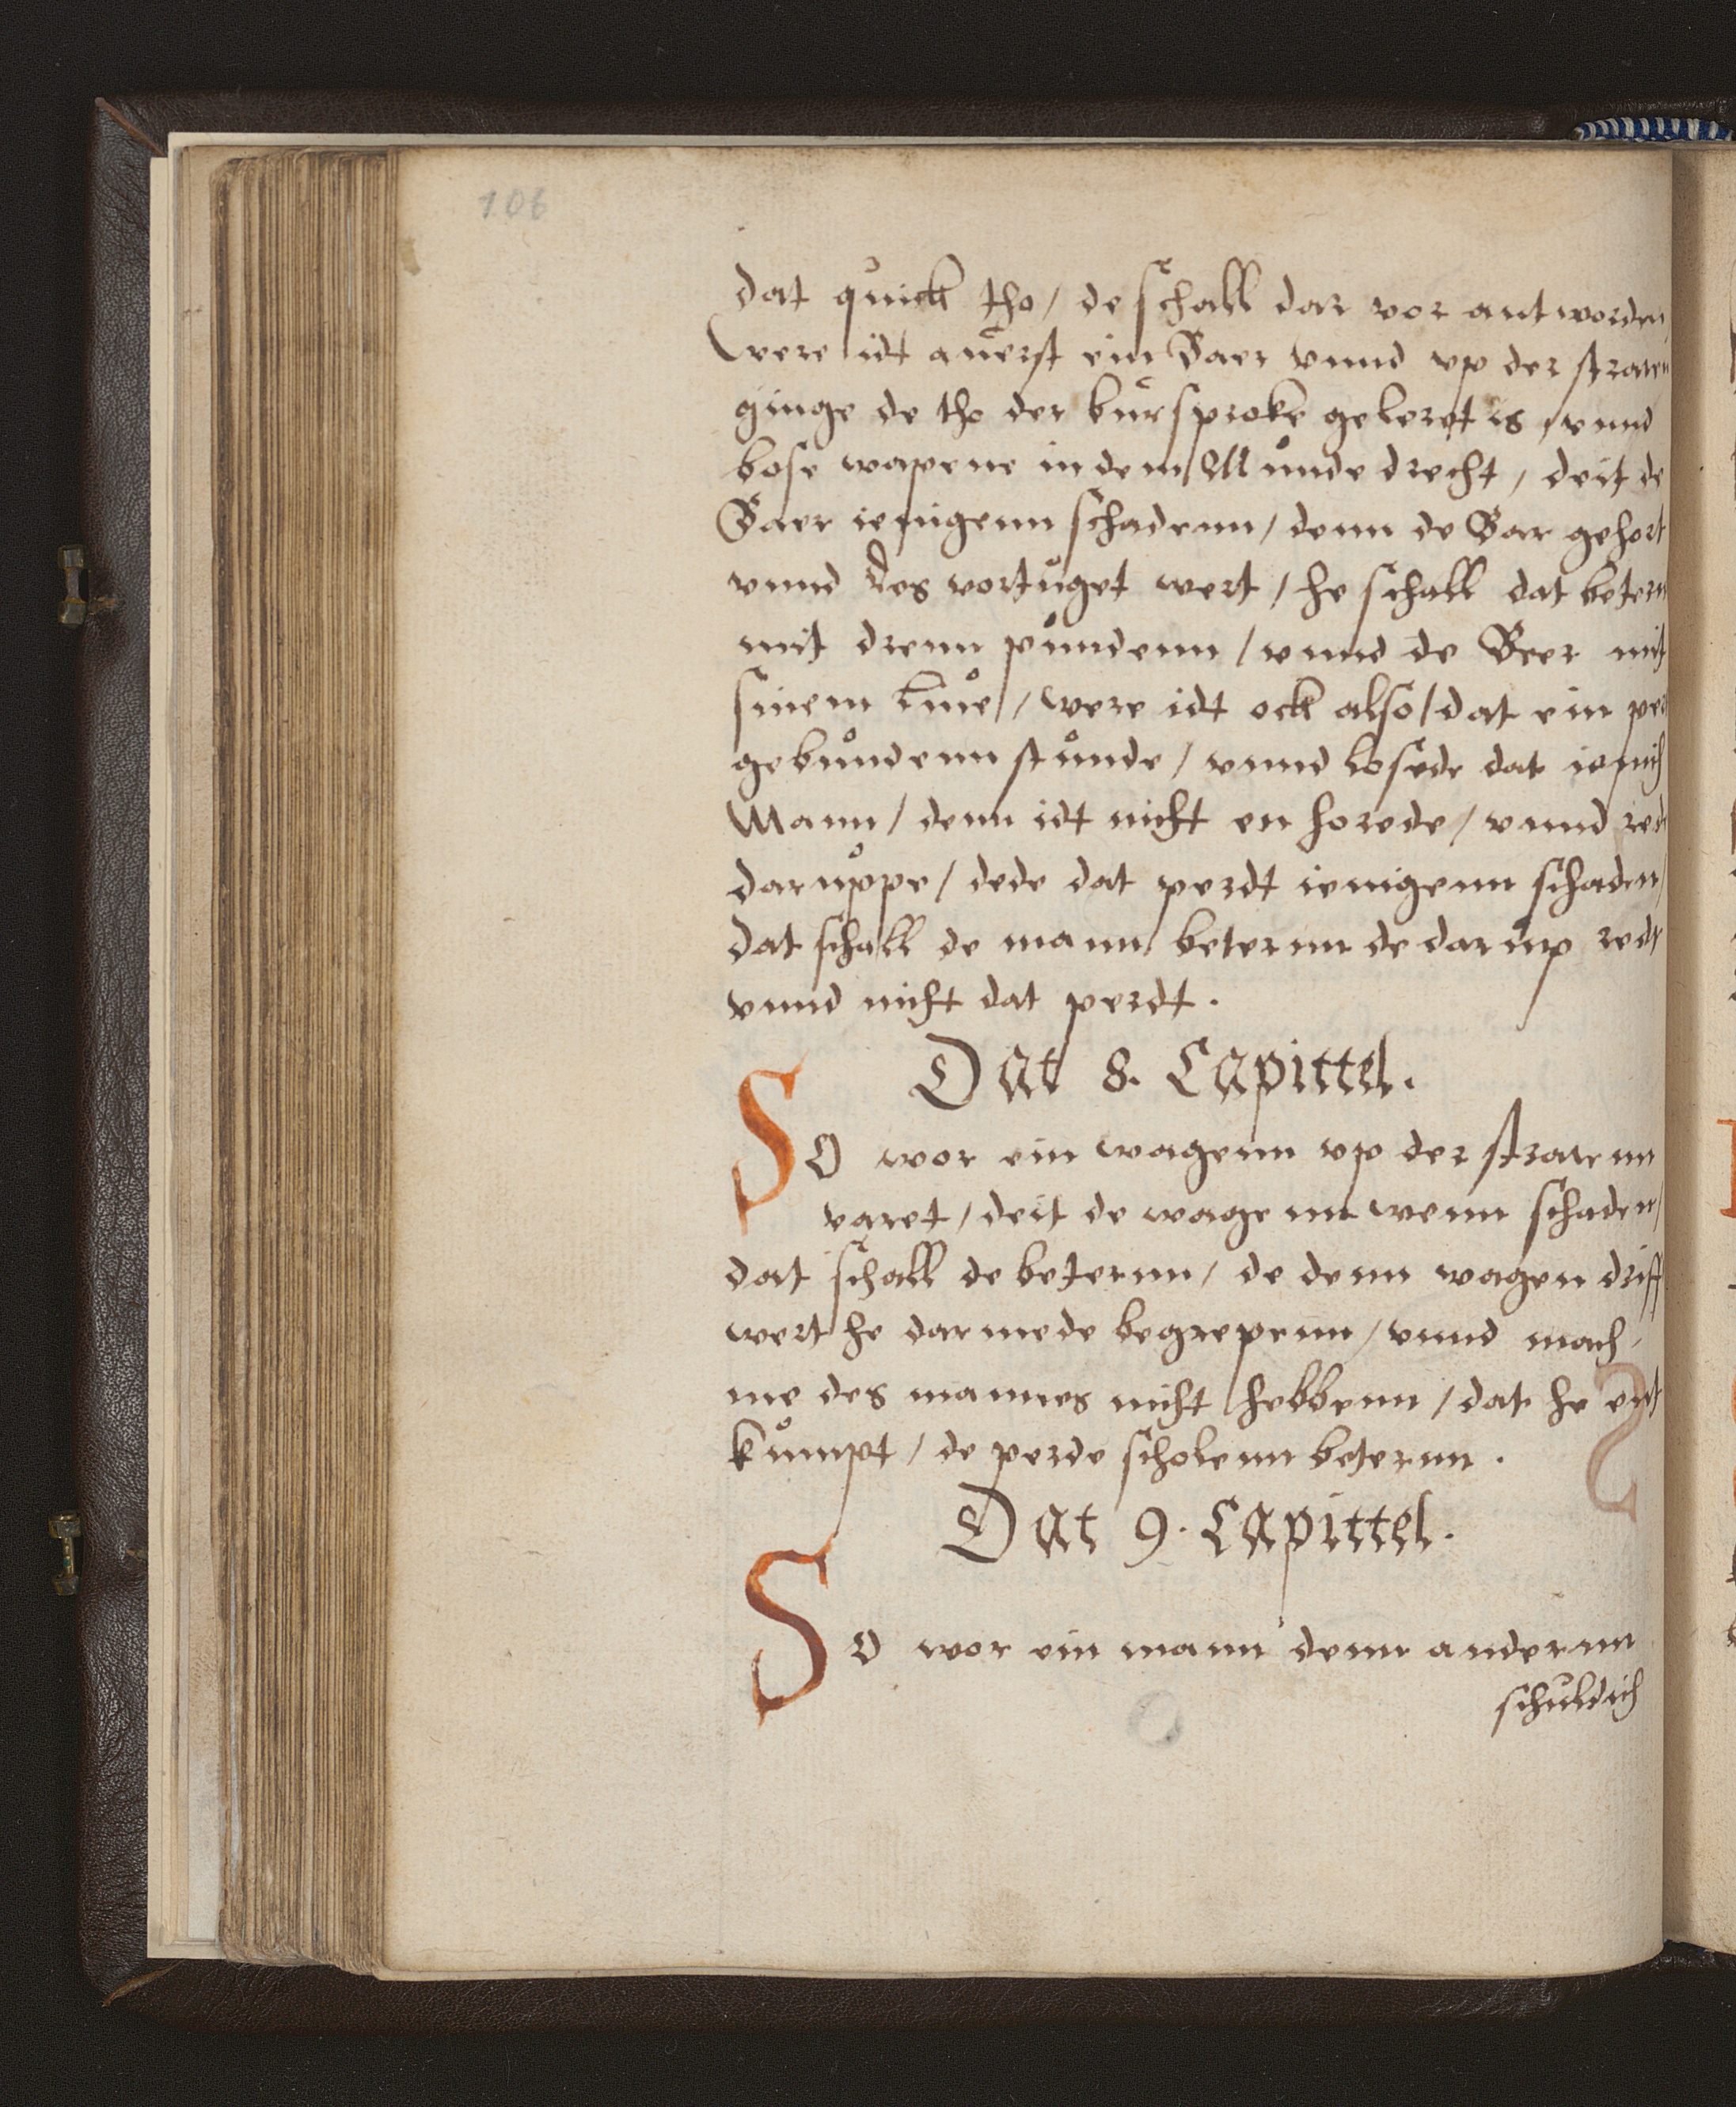 106
dat quick tho / de schall dar vor antworden
were idt auerst ein Baer vnnd vp der straten
ginge de tho der bursproke geleret is / vnnd
bose wapene in dem Munde drecht / deit de
Baer ienigenn schadenn / denn de Bar gehort
vnnd des vortuget wert / he schall dat betern
mit drenn pundenn / vnnd de Beer mit
sinem liue / were idt ock also / dat ein per
gebundenn stunde / vnnd losede dat ienich
Mann / denn idt nicht en horede / vnnd rede
daruppe / dede dat perdt ienigenn schaden /
dat schall de mann beternn de darup redt
vnnd nicht dat perdt.
Dat 8. Capittel.
SO wor ein wagenn vp der stratenn
varet / deit de wagenn wenn schaden /
dat schall de beternn / de denn wagen driff
wert he darmede begrepenn / vnnd mach
me des mannes nicht hebbenn / dat he ent
kumpt / de perde scholenn beternn.
Dat 9. Capittel.
SO wor ein mann denn andernn
schuldich